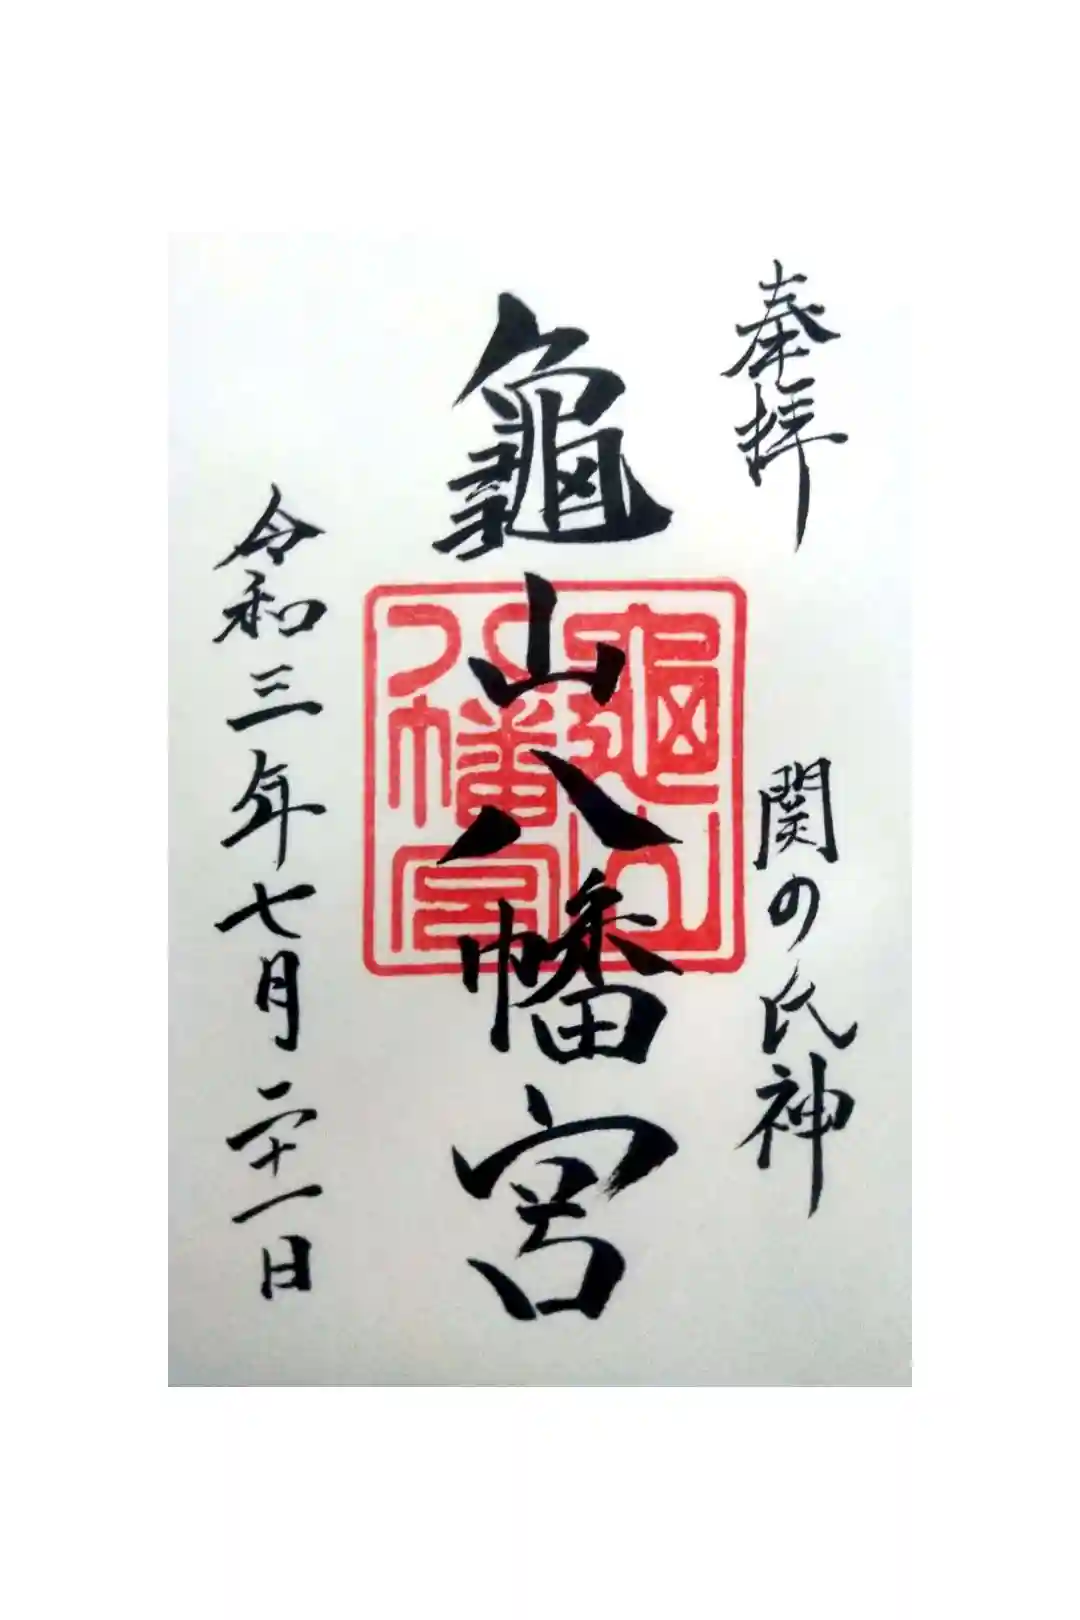 奉拝
関の氏神
龜山八幡宮
龜山八幡宮
令和三年七月二十一日